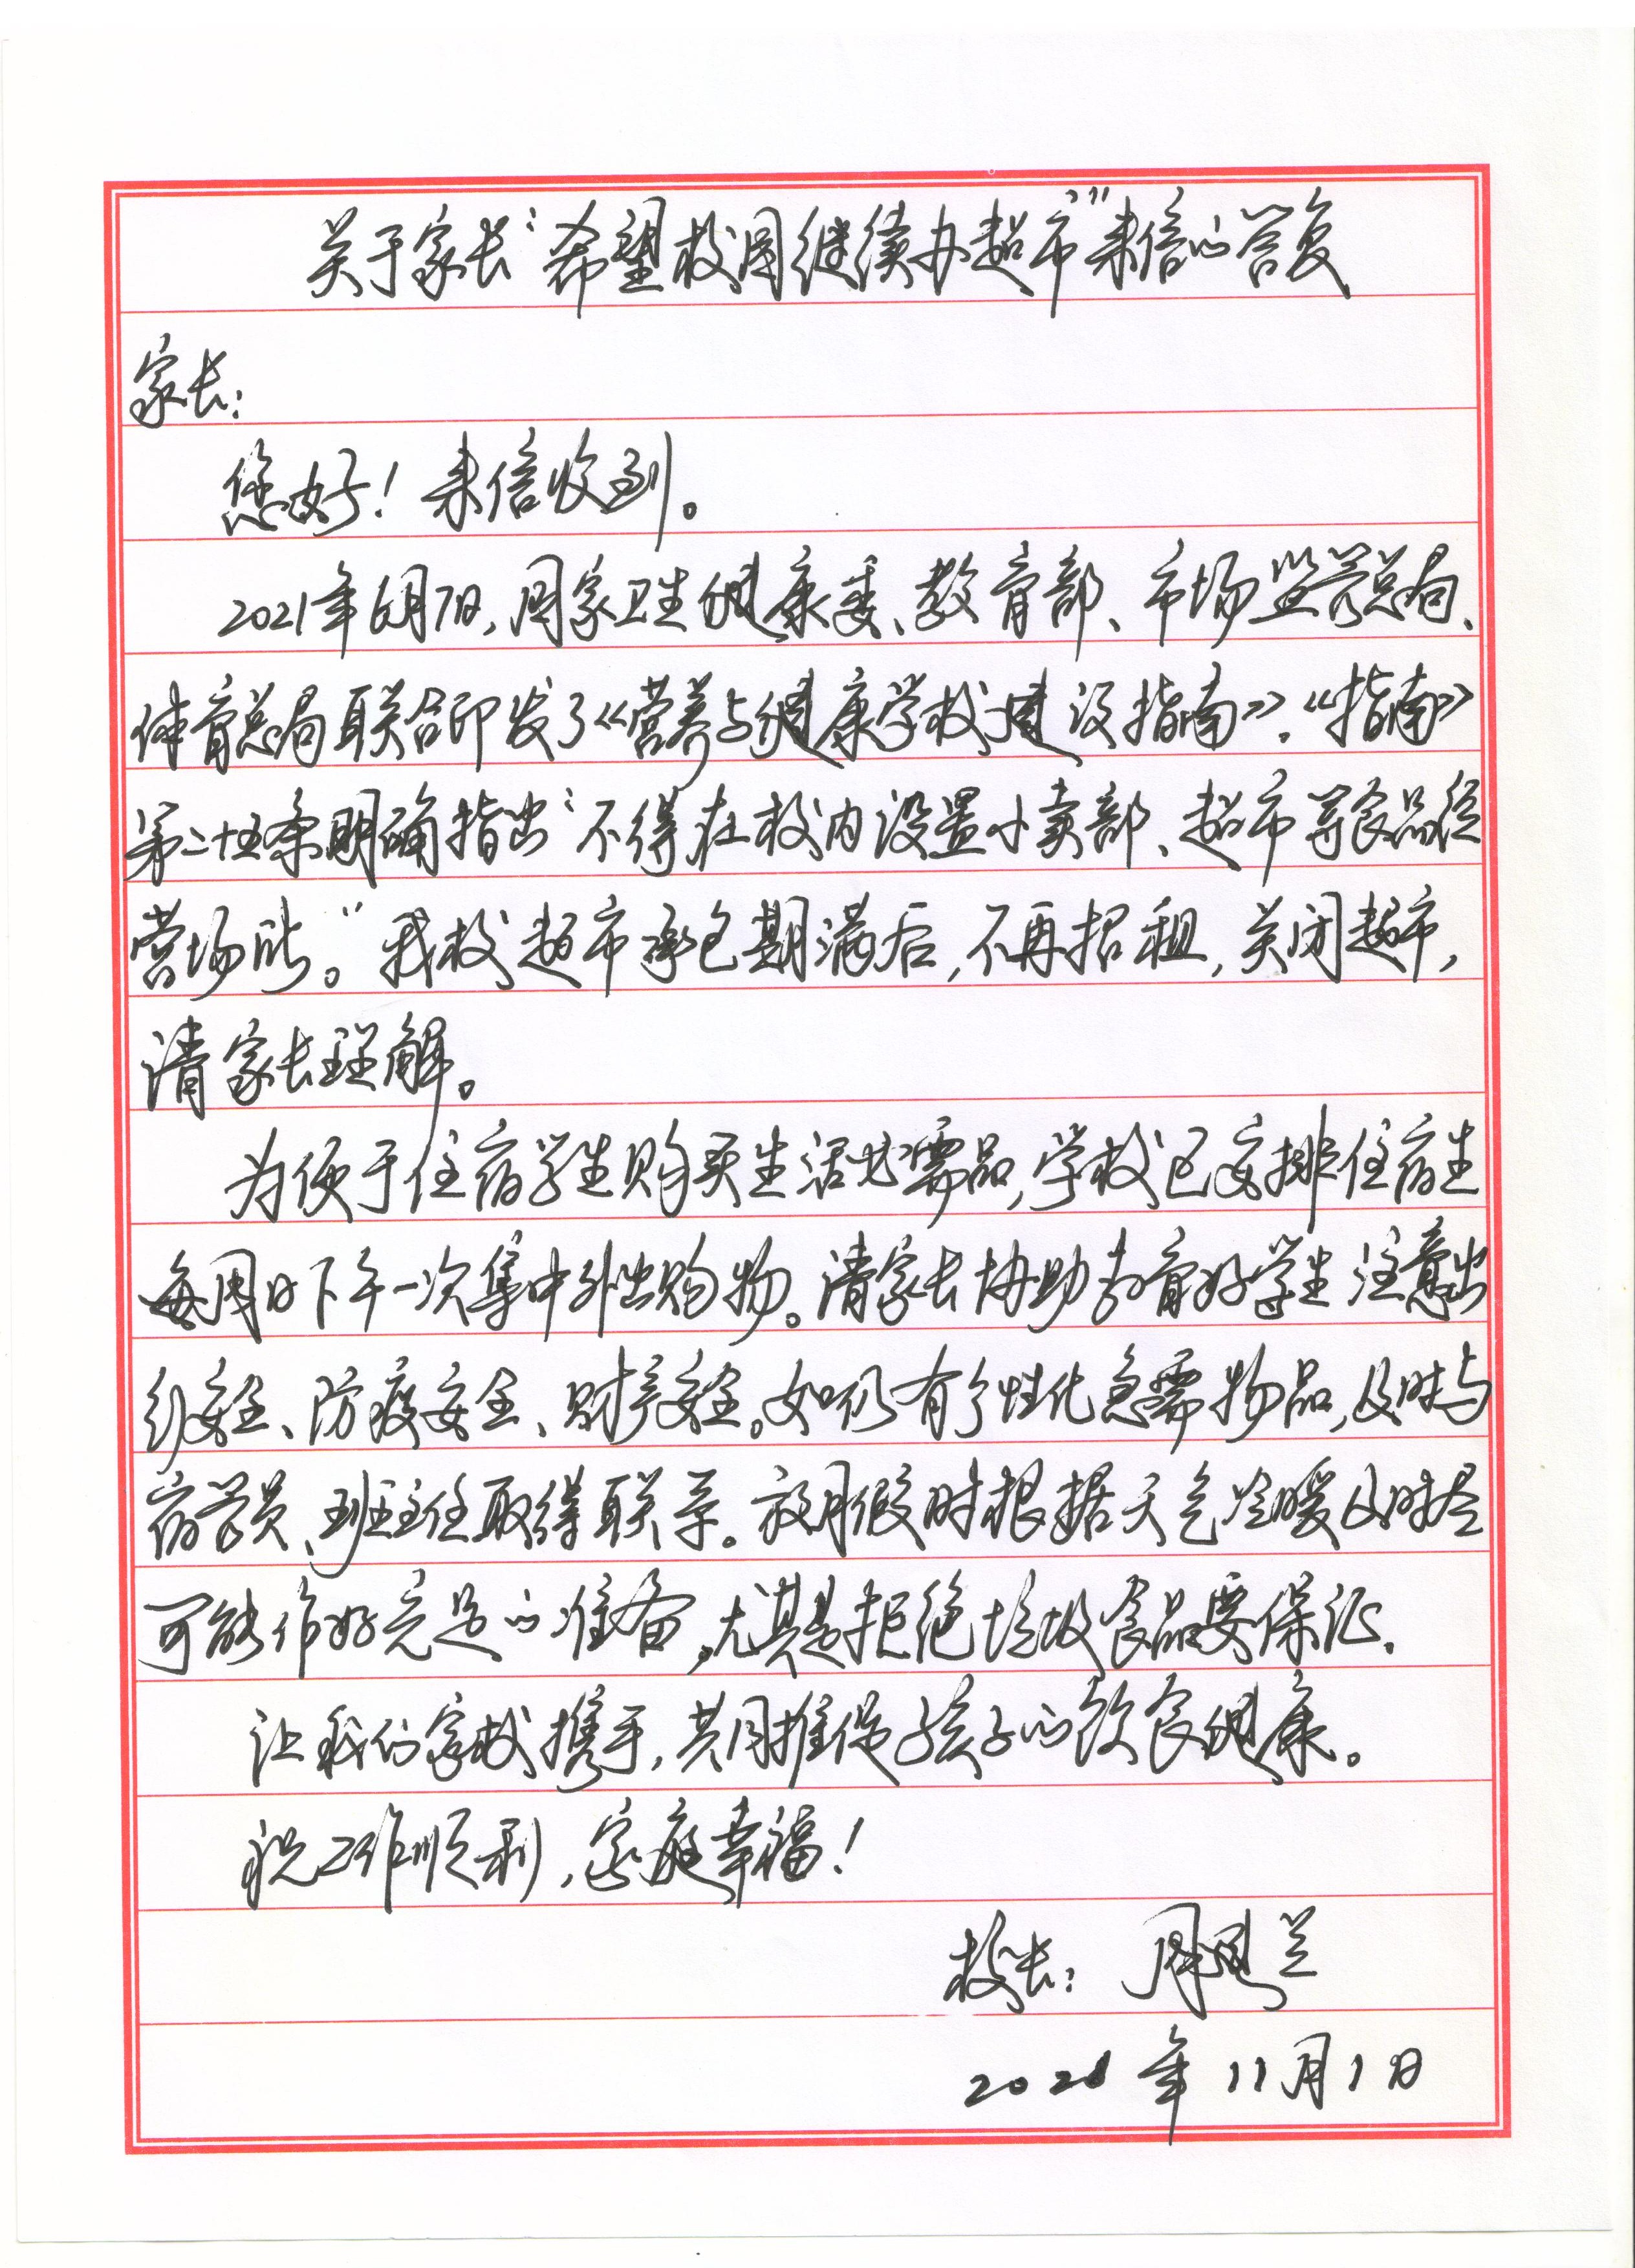 关于家长“希望校园继续办超市”来信的答复
家长：
您好！来信收到。
2021年6月7日，国家卫生健康委、教育部、市场监管总局、
体育总局联合印发了《营养与健康学校建设指南》。《指南》
第二十五条明确指出“不得在校内设置小卖部、超市等食品经
营场所。”我校超市承包期满后，不再招租，关闭超市，
请家长理解。
为便于住宿学生购买生活必需品，学校已安排住宿生
每周日下午一次集中外出购物。请家长协助教育好学生注意出
行安全、防疫安全、财产安全。如仍有个性化急需物品，及时与
宿管员、班主任取得联系。放月假时根据天气冷暖及时尽
可能作好充足的准备，尤其是拒绝垃圾食品要保证。
让我们家校携手，共同推促孩子的饮食健康。
祝工作顺利，家庭幸福！
校长：周
2021年11月1日